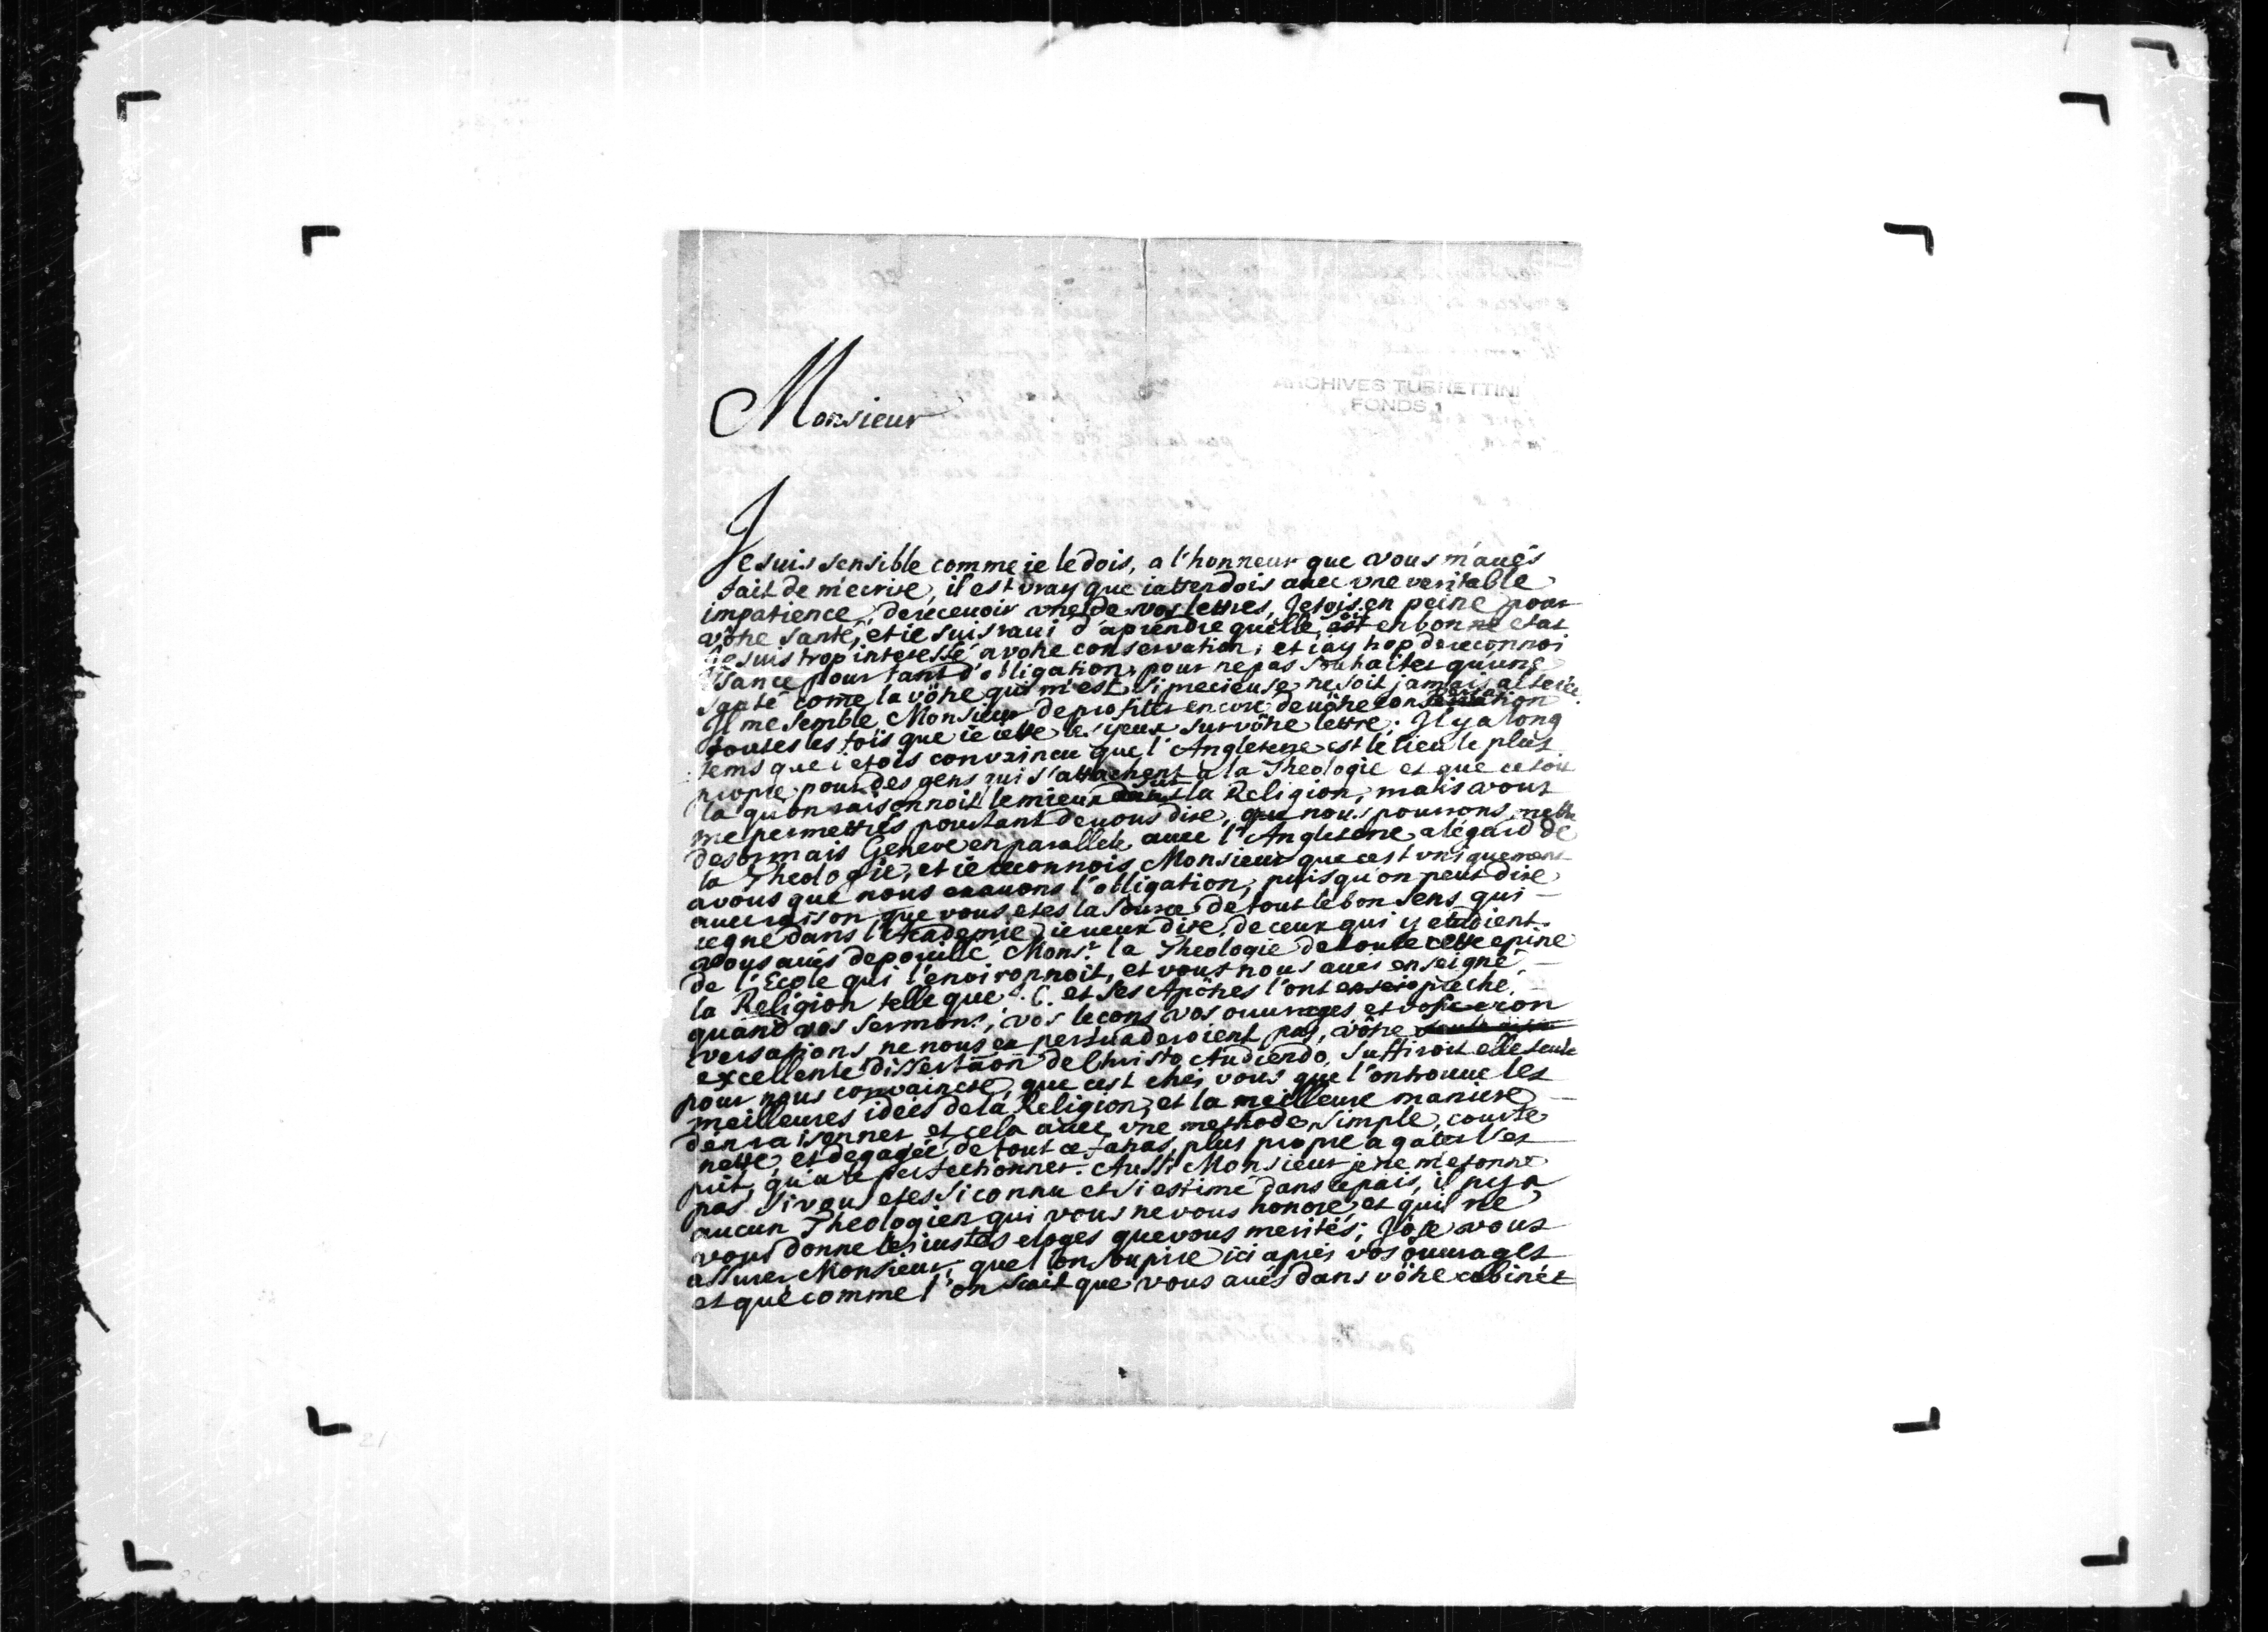 ARCHIVES TURRETTINI
FONDS 1
Monsieur
Je suis sensible comme ie le dois, a l'honneur que vous m'aués
fait de m'ecrire, il est vray que i'attendois auec vne veritable
impatience, de receuoir vne de vos lettres, J'etois en peine pour
vôtre santé, et ie suis raui d'aprendre qu'elle est en bonne etat
Je suis trop interessé a votre conservation, et i'ay trop de reconnoi
ssance pour tant d'obligation, pour ne pas souhaiter qu'une
santé come la vôtre qui m'est si precieuse ne soit jamais alterée.
Il me semble Monsieur de profiter encore de vôtre conversation
toutes les fois que ie iette les yeux sur vôtre lettre. Il y a long
tems que i'etois convaincu que l'Angleterre est le lieu le plus
propre pour des gens qui s'attachent à la Theologie et que ce soit
la qu'on raisonnoit le mieux sur la Religion, mais vous
me permettrés pourtant de vous dire, que nous pourrons mettre
desormais Geneve en parallele auec l'Angleterre a l'égard de
la Theologie, et ie reconnois Monsieur que c'est vniquement
a vous que nous en auons l'obligation, puisqu'on peut dire
auec raison que vous etes la source de tout le bon sens qui
regne dans l'Academie, ie veux dire, de ceux qui y etudient.
Vous aués depouillé Monsr. la Theologie de toute cette epine
de l'Ecole qui l'environnoit, et vous nous aués enseigné
la Religion telle que J. C. et ses Apôtres l'ont preche,
quand vos sermons, vos lecons vos ouurages et vos con
versations ne nous en persuaderoient pas, vôtre
excellente dissertaon de Christo Audiendo, suffiroit elle seule
pour nous convaincre, que c'est chés vous que l'on trouue les
meilleures idées de la Religion, et la meilleure maniere
d'en raisonner et cela auec vne methode simple, courte
nette, et degagée de tout ce fatras, plus propre a gater l'es
prit, qu'a le perfectionner. Aussi Monsieur je ne m'etonne
pas si vous etes si connu et si estimé dans ce païs, il n'y a
aucun Theologien qui vous ne vous honore, et qui ne
vous donne les iustes eloges que vous merités; J'ose vous
assurer Monsieur, que l'on soupire ici aprés vos ouurages
et que comme l'on scait que vous aués dans vôtre cabinet